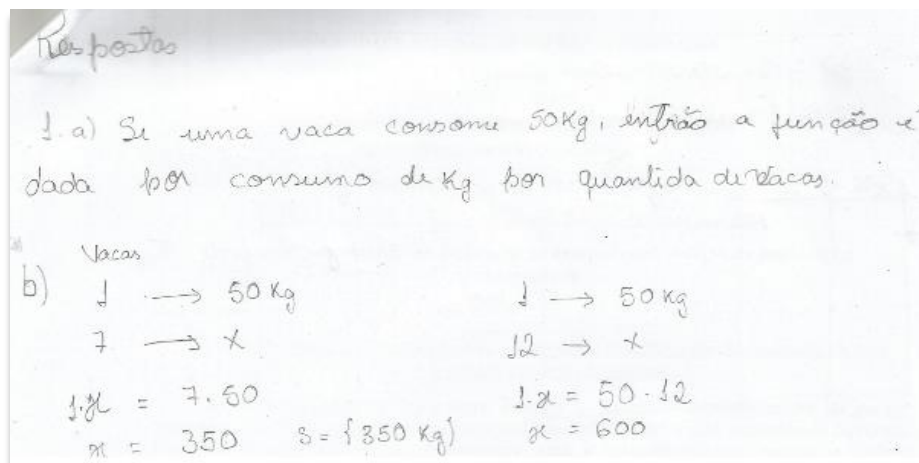 Respostas
1. a) Se uma vaca consome 50Kg, então a função é
dada por consumo de Kg por quantida de vacas.
Vacas
b) 1 → 50 Kg
7 → X
1.x = 7.50
x = 350 S = {350 Kg}
1 → 50 Kg
12 → X
1.x = 50.12
x = 600